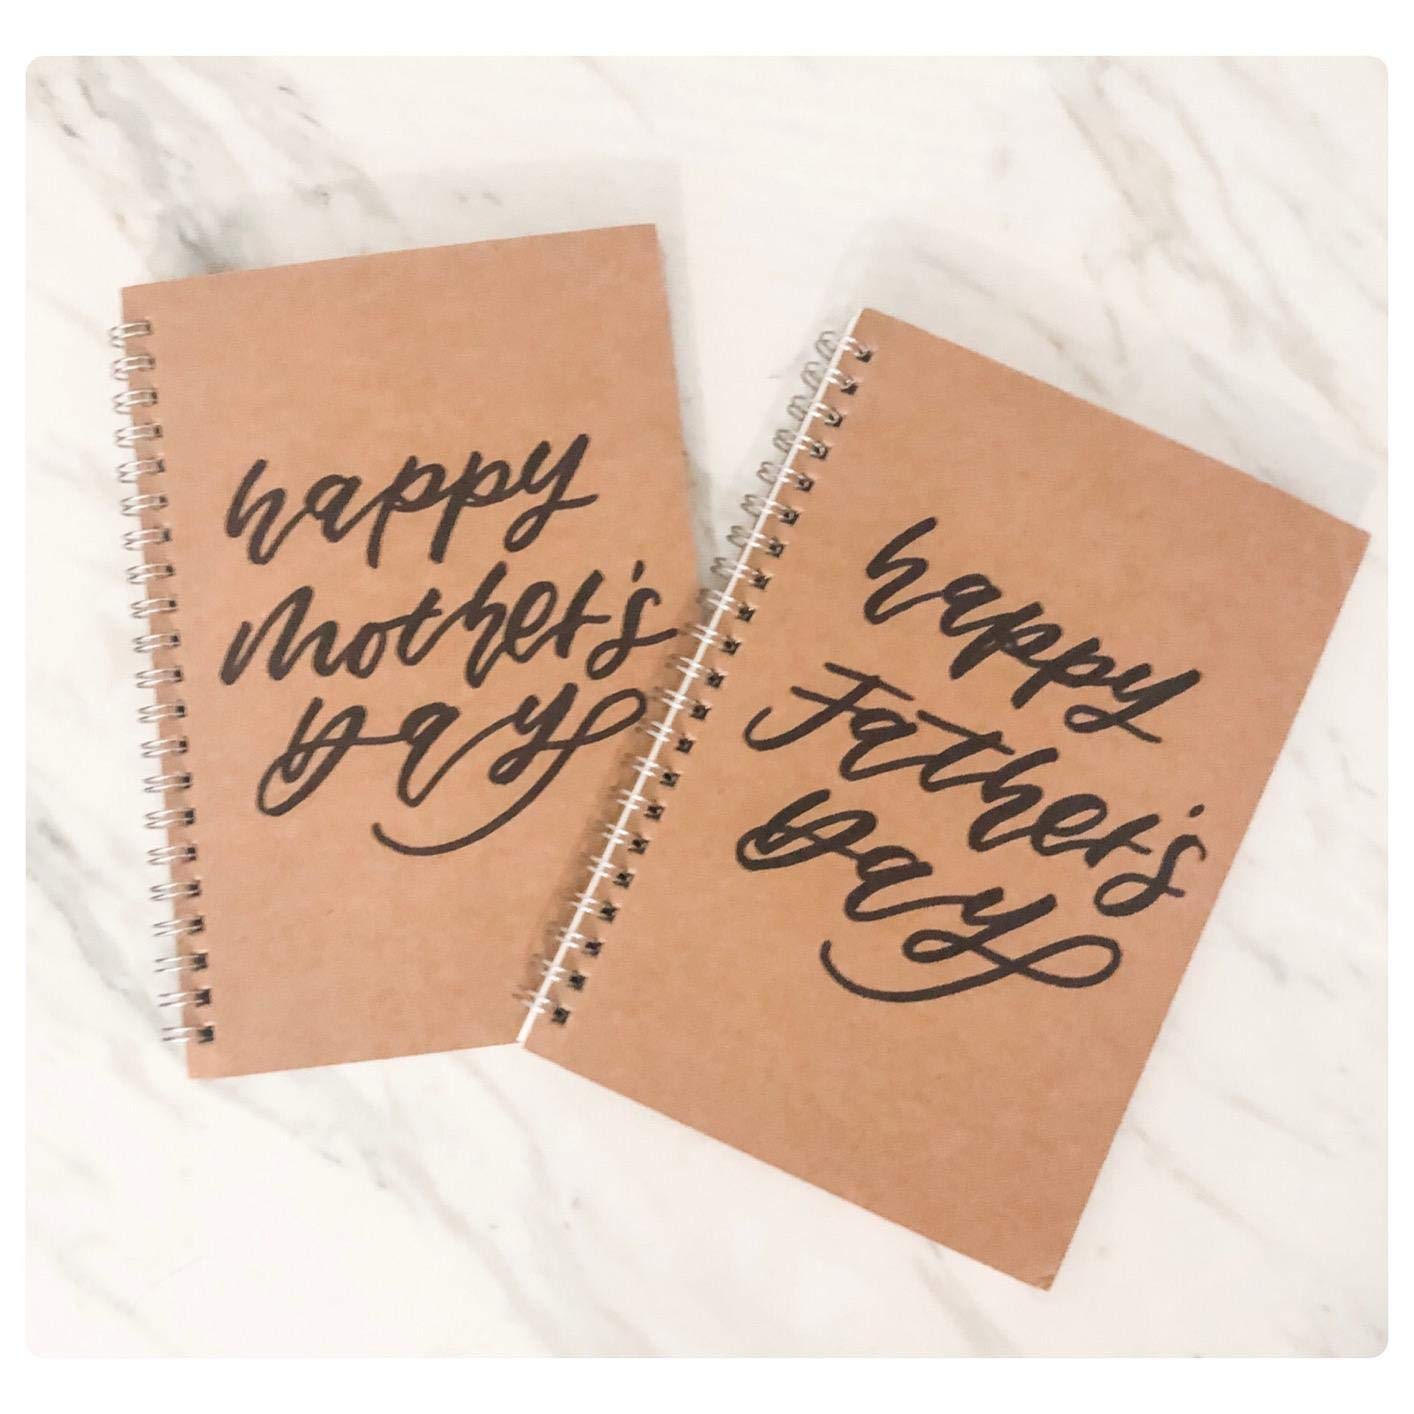 happy
mother's
Day
happy
Father's
Day